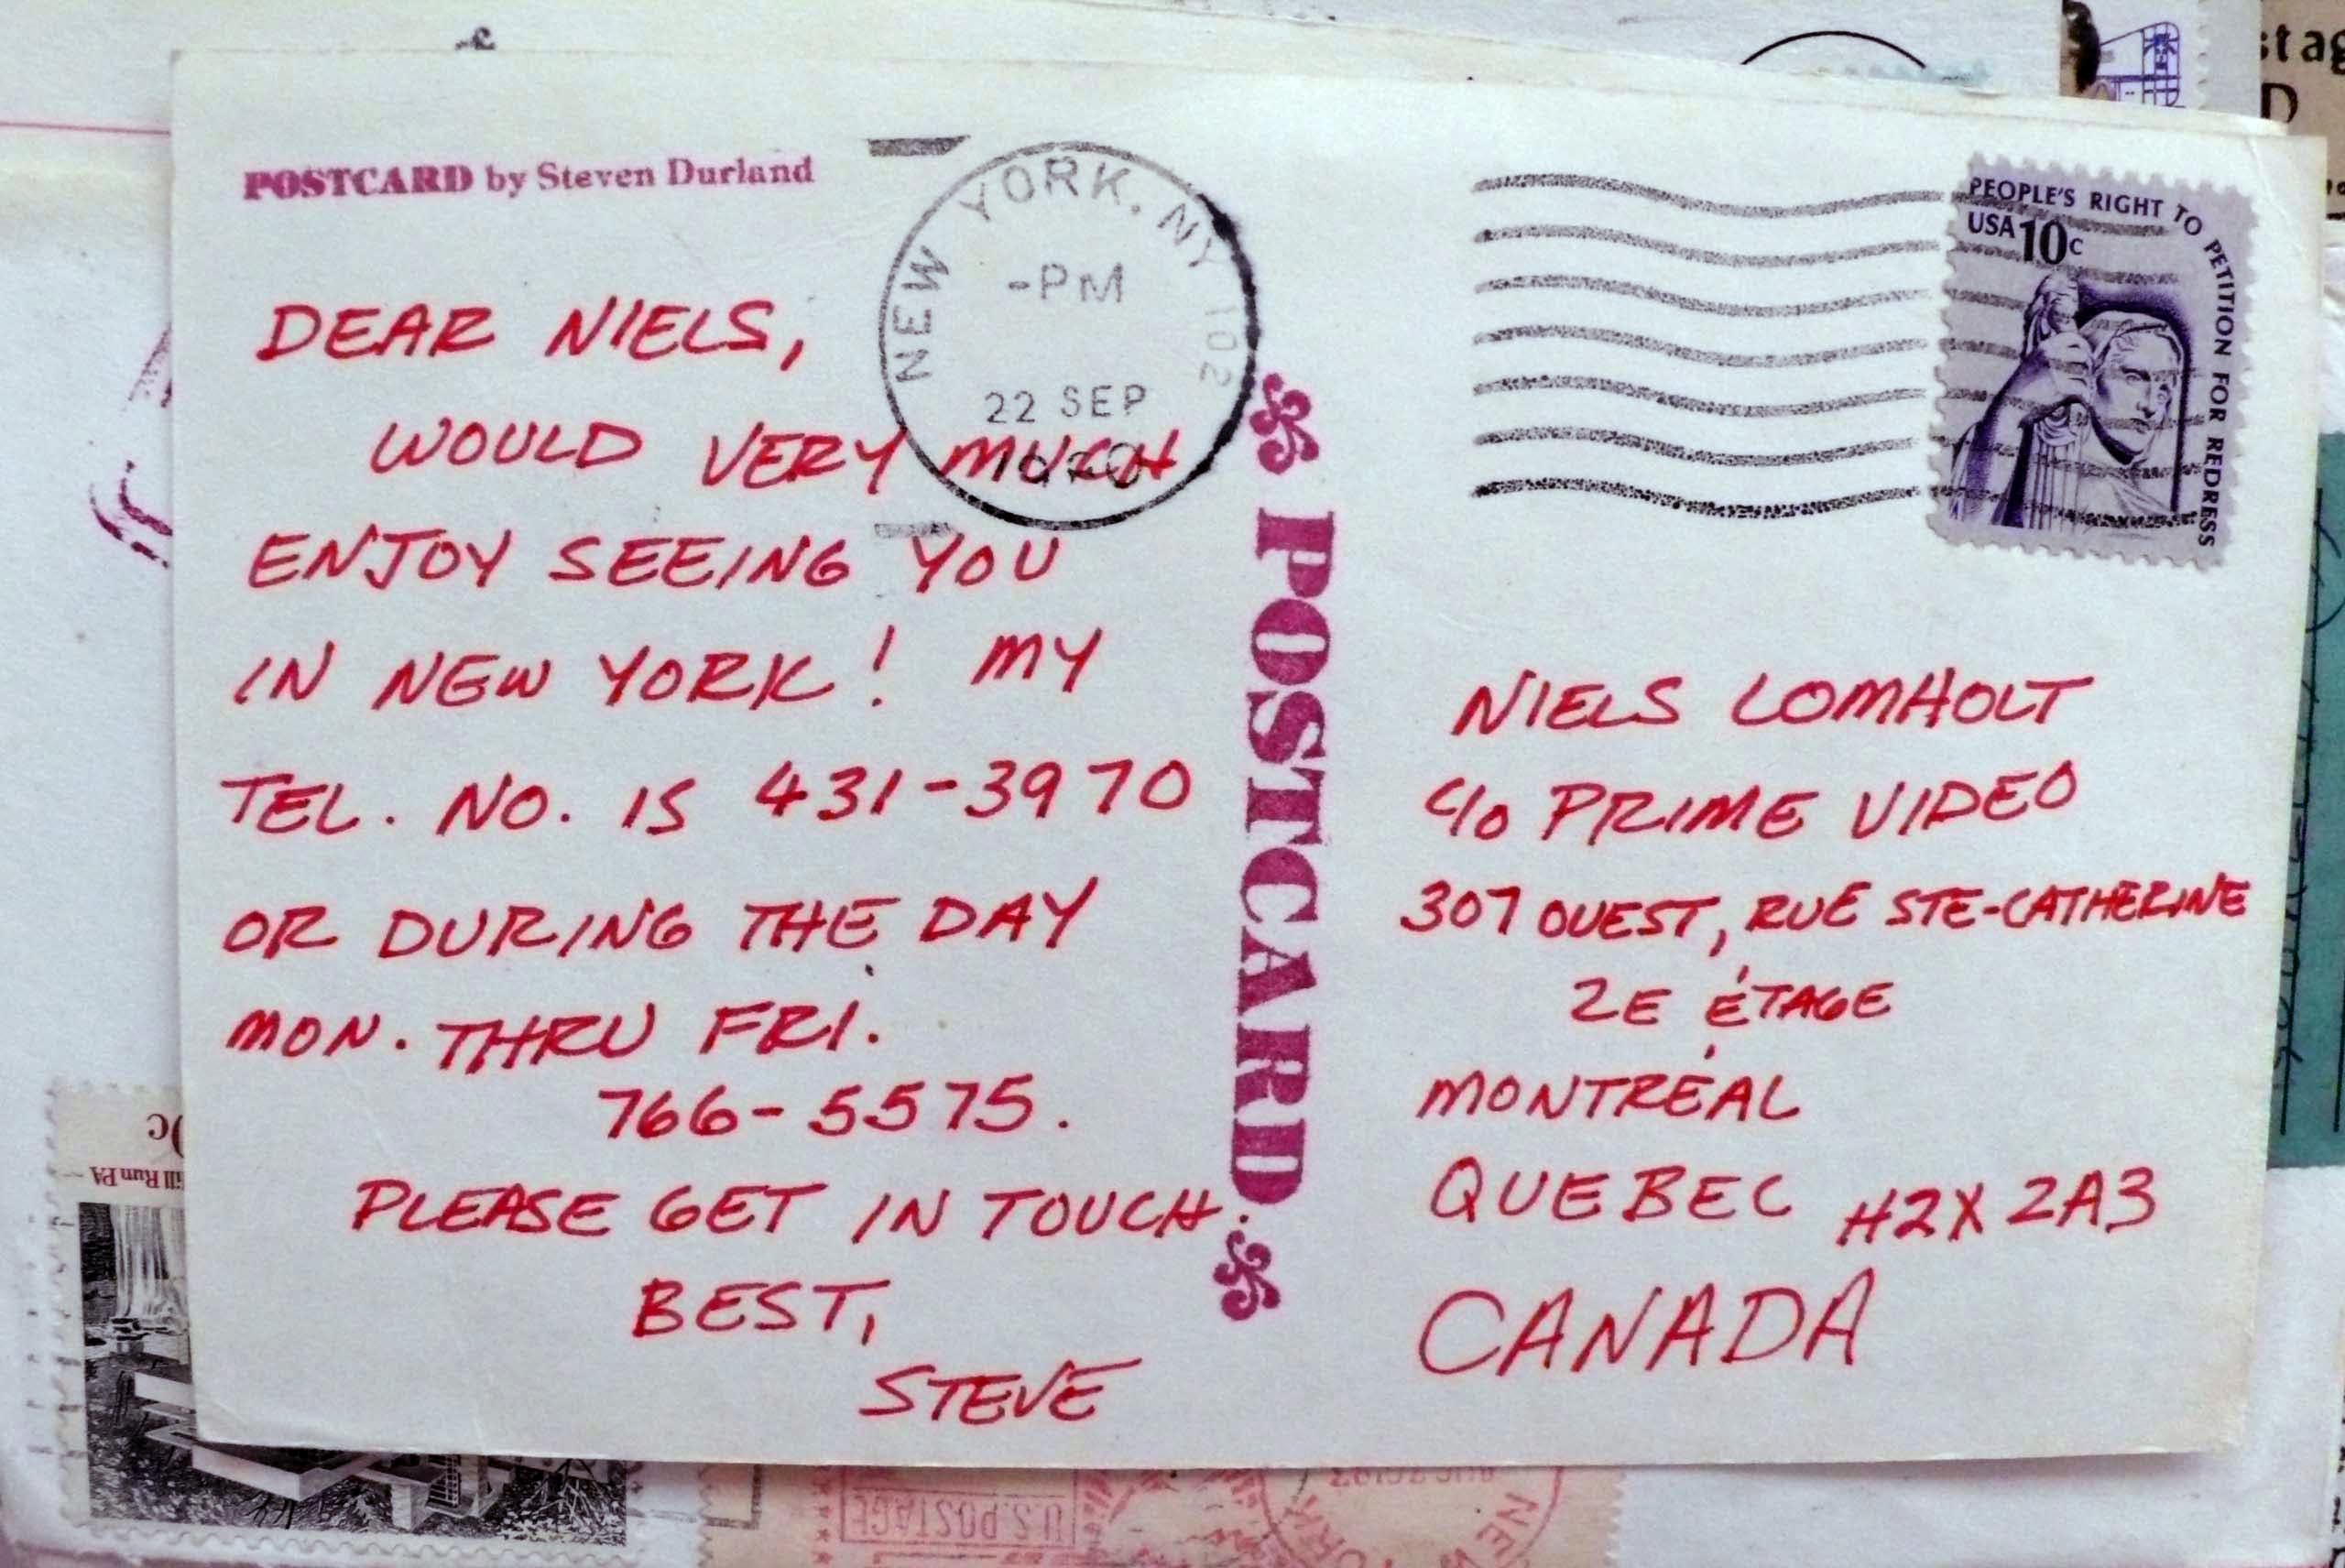 POSTCARD by Steven Durland
DEAR NIELS,
WOULD VERY MUCH
ENJOY SEEING YOU
IN NEW YORK! MY
TEL. NO. IS 431-3970
OR DURING THE DAY
MON. THRU FRI.
766-5575.
PLEASE GET IN TOUCH.
BEST,
STEVE
NEW YORK, NY 102
-PM
22 SEP
POSTCARD
PEOPLE'S RIGHT TO PETITION FOR REDRESS
USA 10c
NIELS LOMHOLT
c/o PRIME VIDEO
307 OUEST, RUE STE-CATHERINE
2E ÉTAGE
MONTRÉAL
QUEBEC H2X 2A3
CANADA
stag
D
ill Run PA
U.S. POSTAGE